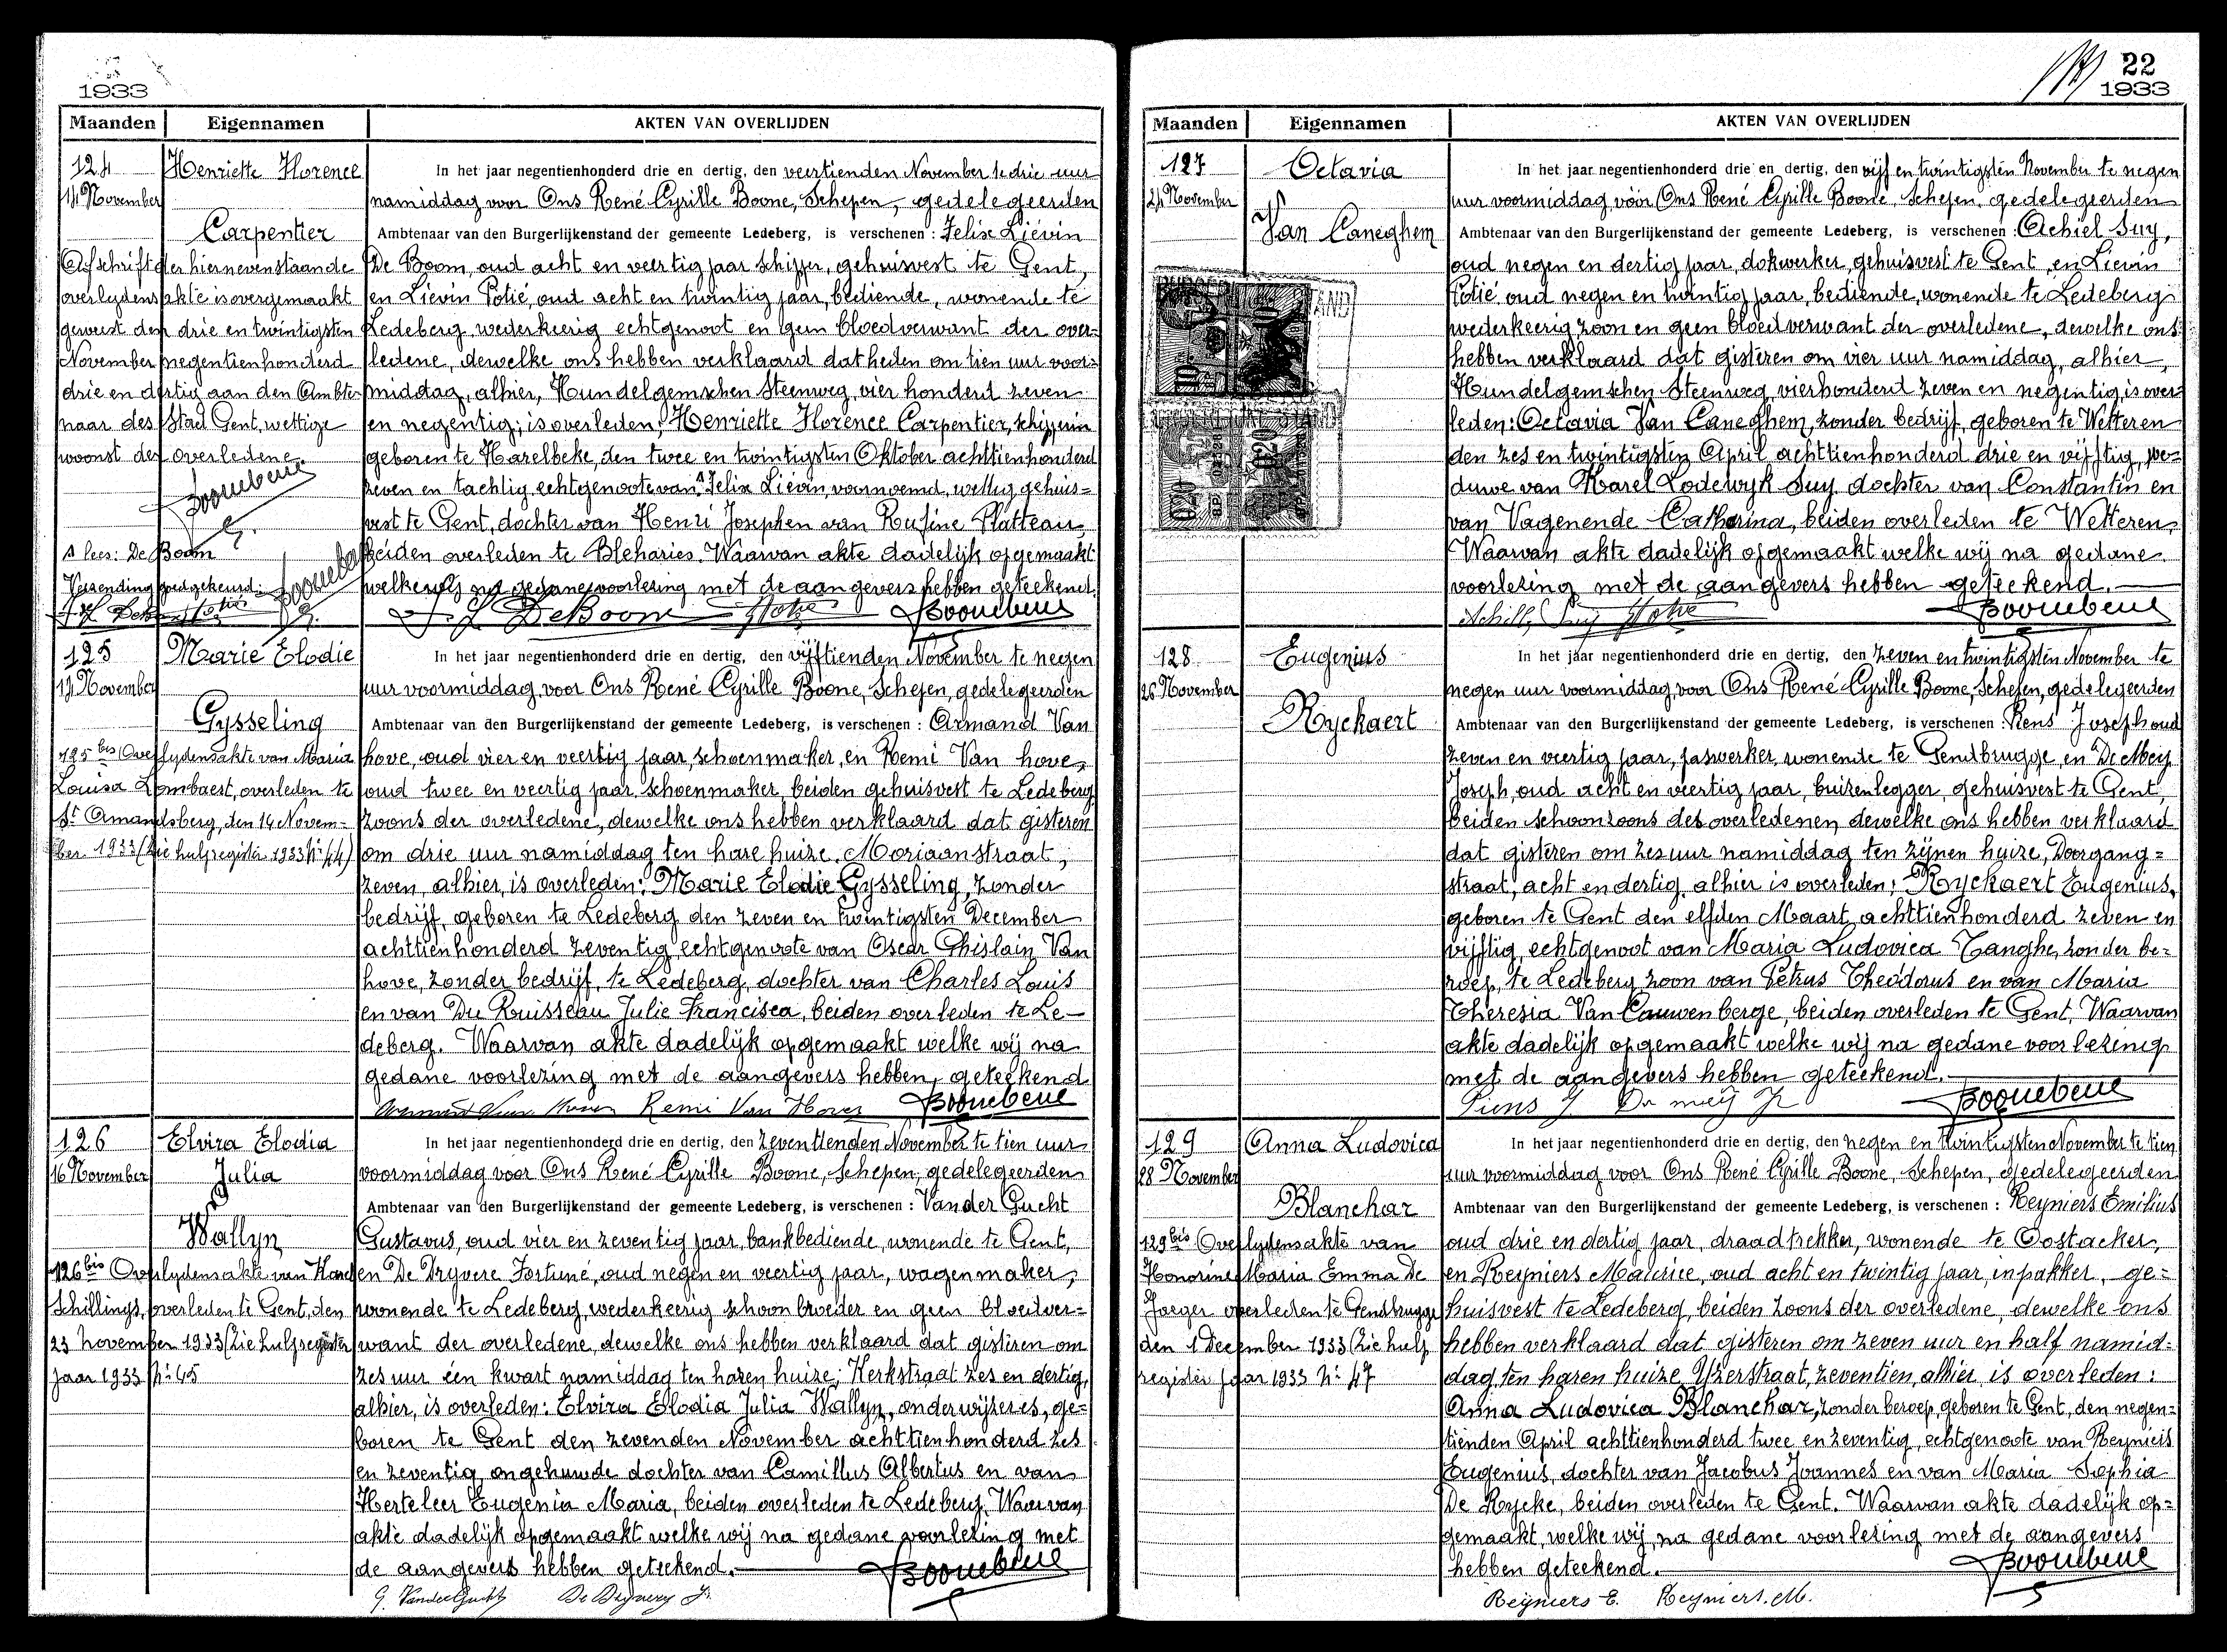 1933
Maanden Eigennamen AKTEN VAN OVERLIJDEN
124 Henriette Florence
14 November
Carpentier
Afschrift der hiernevenstaande
overlydensakte is overgemaakt
geweest den drie en twintigsten
November negentienhonderd
drie en dertig aan den Ambte-
naar des Stad Gent, wettige
woonst der overledene
Boonebene
∆ lees: De Boom
Verzending goedgekeurd:
In het jaar negentienhonderd drie en dertig, den veertienden November te drie uur
namiddag voor Ons René Cyrille Boone, Schepen, gedelegeerden
Ambtenaar van den Burgerlijkenstand der gemeente Ledeberg, is verschenen : Felix Liévin
De Boom, oud acht en veertig jaar schipper, gehuisvest te Gent,
en Liévin Potié, oud acht en twintig jaar, bediende, wonende te
Ledeberg wederkeerig echtgenoot en geen bloedverwant der over=
ledene, dewelke ons hebben verklaard dat heden om tien uur voor=
middag, alhier, Hundelgemschen Steenweg, vier honderd zeven
en negentig, is overleden: Henriette Florence Carpentier, schipperin
geboren te Harelbeke, den twee en twintigsten Oktober achttienhonderd
zeven en tachtig echtgenoote van ∆ Felix Liévin, voornoemd, wettig gehuis=
vest te Gent, dochter van Henri Joseph en van Rufine Platteau,
beiden overleden te Bleharies. Waarvan akte dadelijk opgemaakt
welke wij na gedane voorlezing met de aangevers hebben geteekend.
F. L. De Boom Potié Boonebene
125 Marie Elodie
14 November
Gysseling
125 bis Overlydensakte van Maria
Louisa Lombaert, overleden te
St Amandsberg, den 14 Novem=
ber 1933 (zie hulpregister 1933 Nr 44)
In het jaar negentienhonderd drie en dertig, den vijftienden November te negen
uur voormiddag voor Ons René Cyrille Boone, Schepen, gedelegeerden
Ambtenaar van den Burgerlijkenstand der gemeente Ledeberg, is verschenen : Armand Van
hove, oud vier en veertig jaar, schoenmaker, en Remi Van hove,
oud twee en veertig jaar schoenmaker, beiden gehuisvest te Ledeberg,
zoons der overledene, dewelke ons hebben verklaard dat gisteren
om drie uur namiddag ten hare huize, Moriaanstraat,
zeven, alhier, is overleden: Marie Elodie Gysseling, zonder
bedrijf, geboren te Ledeberg den zeven en twintigsten December
achttienhonderd zeventig echtgenoote van Oscar Ghislain Van
hove, zonder bedrijf, te Ledeberg, dochter van Charles Louis
en van Du Ruisseau Julie Francisca, beiden overleden te Le-
deberg. Waarvan akte dadelijk opgemaakt welke wij na
gedane voorlezing met de aangevers hebben, geteekend
Armand Van Hove Remi Van Hove Boonebene
126 Elvira Elodia
16 November Julia
Wallyn
126 bis Overlydensakte van Karel
Schillings, overleden te Gent, den
23 november 1933 (zie hulpregister
jaar 1933 Nr 45
In het jaar negentienhonderd drie en dertig, den zeventienden November te tien uur
voormiddag voor Ons René Cyrille Boone, Schepen, gedelegeerden
Ambtenaar van den Burgerlijkenstand der gemeente Ledeberg, is verschenen : Van der Gucht
Gustavus, oud vier en zeventig jaar, bankbediende, wonende te Gent,
en De Dryvere Fortuné, oud negen en veertig jaar, wagenmaker,
wonende te Ledeberg, wederkeerig schoonbroeder en geen bloedver=
want der overledene, dewelke ons hebben verklaard dat gisteren om
zes uur één kwart namiddag ten haren huize; Kerkstraat zes en dertig,
alhier, is overleden: Elvira Elodia Julia Wallyn, onderwijzeres, ge=
boren te Gent den zevenden November achttienhonderd zes
en zeventig, ongehuwde dochter van Camillus Albertus en van
Herteleer Eugenia Maria, beiden overleden te Ledeberg. Waarvan
akte dadelijk opgemaakt welke wij na gedane voorlezing met
de aangevers hebben geteekend.
G. VanderGucht De Dryvere F. Boonebene
22
1933
Maanden Eigennamen AKTEN VAN OVERLIJDEN
127 Octavia
24 November
Van Caneghem
In het jaar negentienhonderd drie en dertig, den vijf en twintigsten November te negen
uur voormiddag voor Ons René Cyrille Boone, Schepen, gedelegeerden
Ambtenaar van den Burgerlijkenstand der gemeente Ledeberg, is verschenen : Achiel Suy,
oud negen en dertig jaar, dokwerker, gehuisvest te Gent, en Lievin
Potié oud negen en twintig jaar, bediende, wonende te Ledeberg
wederkeerig zoon en geen bloedverwant der overledene, dewelke ons
hebben verklaard dat gisteren om vier uur namiddag, alhier,
Hundelgemschen Steenweg, vierhonderd zeven en negentig, is over=
leden: Octavia Van Caneghem, zonder bedrijf, geboren te Wetteren
den zes en twintigsten April achttienhonderd drie en vijftig, we=
duwe van Karel Lodewyk Suy dochter van Constantin en
van Vagenende Catharina, beiden overleden te Wetteren,
Waarvan akte dadelijk opgemaakt welke wij na gedane
voorlezing met de aangevers hebben geteekend.
Achille Suy Potié Boonebene
128 Eugenius
26 November
Ryckaert
In het jaar negentienhonderd drie en dertig, den zeven en twintigsten November te
negen uur voormiddag voor Ons René Cyrille Boone, Schepen, gedelegeerden
Ambtenaar van den Burgerlijkenstand der gemeente Ledeberg, is verschenen : Rens Joseph oud
zeven en veertig jaar, paswerker, wonende te Gendbrugge, en De Mey
Joseph, oud acht en veertig jaar, buizenlegger, gehuisvest te Gent,
beiden schoonzoons des overledenen, dewelke ons hebben verklaard
dat gisteren om zes uur namiddag ten zijnen huize, Doorgang=
straat, acht en dertig, alhier is overleden: Ryckaert Eugenius,
geboren te Gent den elfden Maart achttienhonderd zeven en
vijftig, echtgenoot van Maria Ludovica Tanghe, zonder be=
roep, te Ledeberg zoon van Petrus Theodorus en van Maria
Theresia Van Cauwenberge, beiden overleden te Gent. Waarvan
akte dadelijk opgemaakt welke wij na gedane voorlezing
met de aangevers hebben geteekend.
De meij J. Boonebene
129 Anna Ludovica
28 November
Blanchar
129 bis Overlydensakte van
Honorine Maria Emma De
Jaeger overleden te Gendbrugge
den 1 December 1933 (zie hulp
register jaar 1933 Nr 47
In het jaar negentienhonderd drie en dertig, den negen en twintigsten November te tien
uur voormiddag voor Ons René Cyrille Boone, Schepen, gedelegeerden
Ambtenaar van den Burgerlijkenstand der gemeente Ledeberg, is verschenen : Reyniers Emilius
oud drie en dertig jaar, draadtrekker, wonende te Oostacker,
en Reyniers Maurice, oud acht en twintig jaar, inpakker, ge=
huisvest te Ledeberg, beiden zoons der overledene, dewelke ons
hebben verklaard dat gisteren om zeven uur en half namid=
dag, ten haren huize, Yzerstraat, zeventien, alhier, is overleden:
Anna Ludovica Blanchar, zonder beroep, geboren te Gent, den negen=
tienden April achttienhonderd twee en zeventig, echtgenoote van Reyniers
Eugenius, dochter van Jacobus Joannes en van Maria Sophia
De Rycke, beiden overleden te Gent. Waarvan akte dadelijk op=
gemaakt, welke wij, na gedane voorlezing met de aangevers
hebben geteekend.
Reyniers E. Reyniers. M. Boonebene